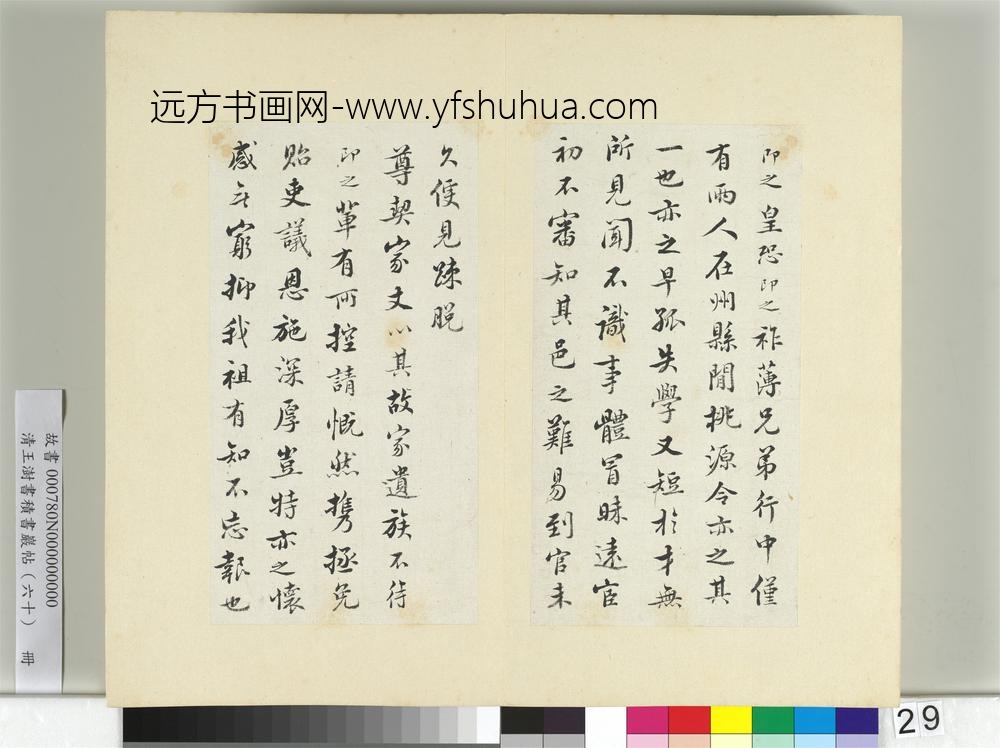 远方书画网-www.yfshuhua.com
即之皇恐即之祚薄兄弟行中僅
有兩人在州縣閒桃源令亦之其
一也亦之早孤失學又短於才無
所見聞不識事體冒昧遠宦
初不審知其邑之難易到官未
久便見疎脫
尊契家丈以其故家遺族不待
即之輩有所控請慨然攜拯免
貽吏議恩施深厚豈特亦之懷
感無窮抑我祖有知不忘報也
故書 000780N000000000
清王澍書積書巖帖(六十) 冊
29